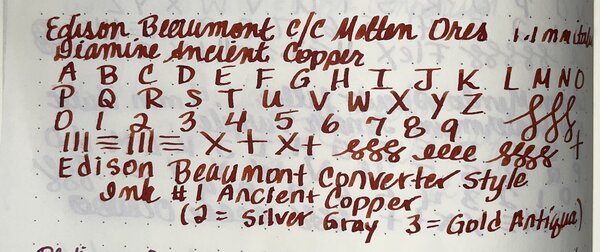 Edison Beaumont c/c Molten Ores 1.1mm ital
Diamine Ancient Copper
A B C D E F G H I J K L M N O
P Q R S T U V W X Y Z
0 1 2 3 4 5 6 7 8 9
X + X +
Edison Beaumont Converter Style
Ink #1 Ancient Copper
(2 = Silver Gray 3 = Gold Antiqua)